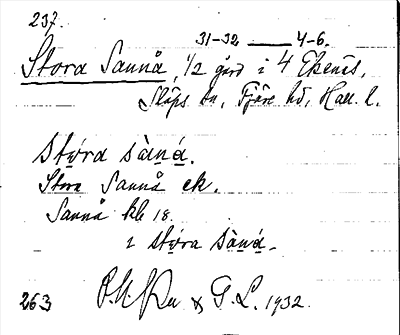 237.
31-32 — 4-6.
Stora Sannå, 1/2 gård i 4 Ekenäs,
Släps sn, Fjäre hd, Hall. l.
stɷ́ra sàná.
Stora Sannå ek.
Sannå kb 18.
i stɷ́ra sàná.
& G.L. 1932.
263